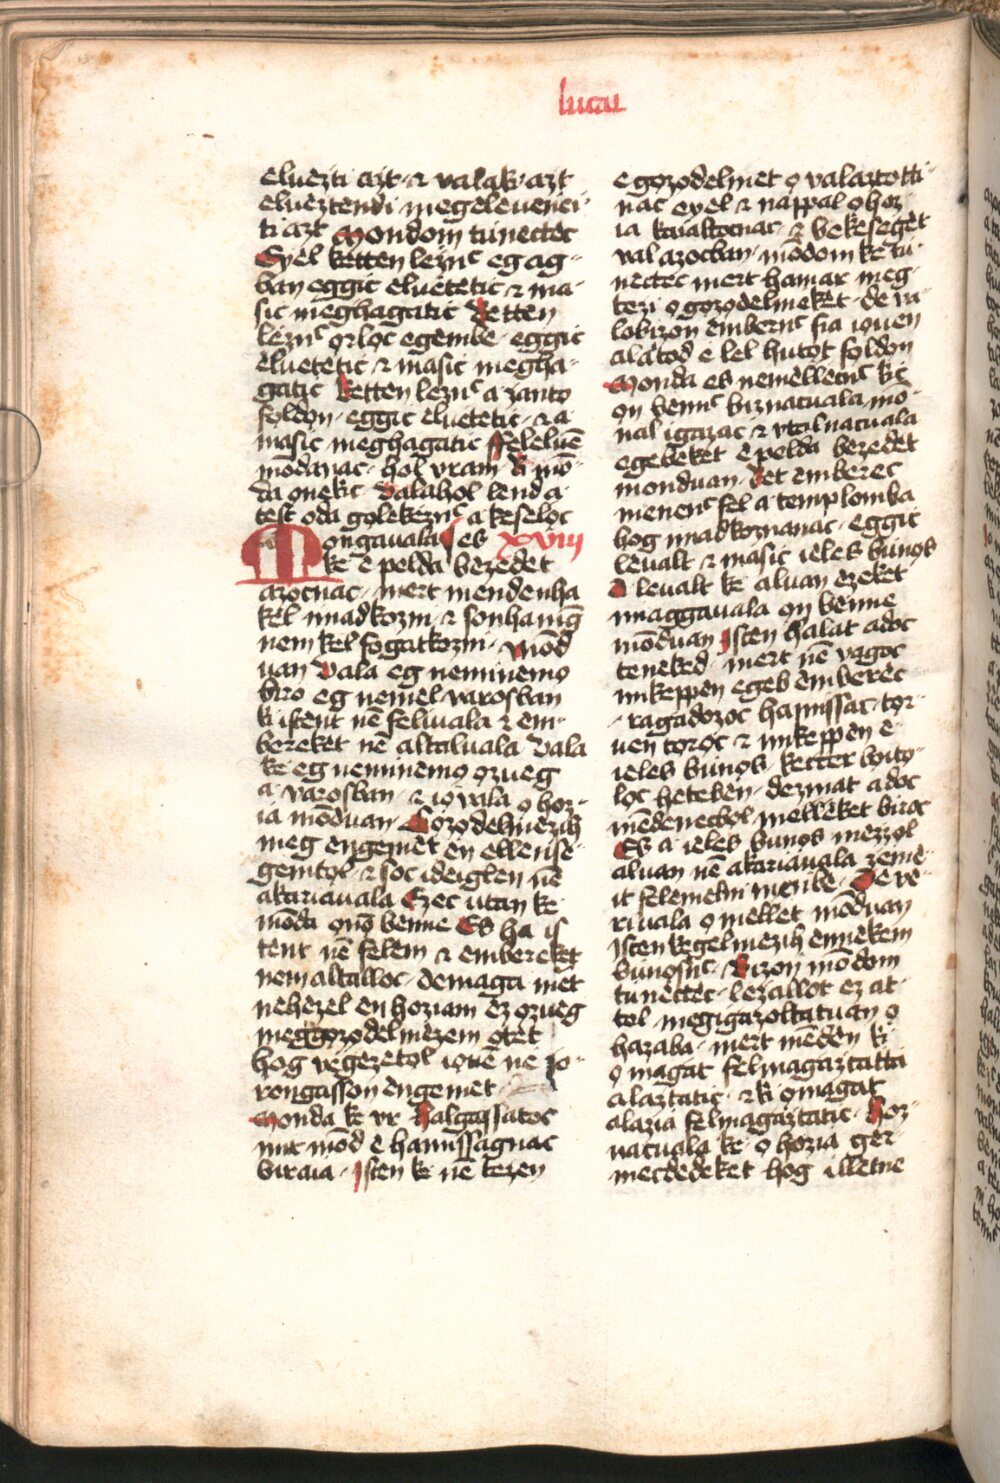 lucau
eluezti azt · ⁊ valaki azt
elueztendi megeleueneі·
ti azt Mondom tunectec
Eyel ketten leznc̓ eg ag·
ban eggic eluetetic ⁊ ma·
sic meghagatic Ketten
leznc̓ orloc egembe · eggic
eluetetic ⁊ masic megha·
gatic Ketten leznc̓ a zanto
foldon · eggic eluetetic · ⁊ a
masic meghagatic Feleluē
mōdanac · hol vram · ki mō·
da onekic Valahol lend a
test oda golekeznc̓ a keseloc
Mongauala es xviii
ke ē pelda bezedet
azocnac · mert mendenha
kel imadkozni ⁊ sonhaniḡ
nem kel fogatkozni · Mōd
uan Vala eg neminemo
biro eg nemel varosban
ki istent nē feluala ⁊ em·
bereket nē altaluala Vala
ke eg neminemo ozueg
a varosban · ⁊ iouala o hoz·
ia mōduan · Gozodelmezih
meg engemet en ellense·
gemtol · ⁊ soc ideiglen nē
akariauala Ezec utan ke
mōda onō benne Es ha is
tent nē felem ⁊ embereket
nem altalloc · demaga mert
nehezel en hoziam ez ozueg
meggozodelmezem otet
hog vegezetol iouē ne zo·
rongasson engemet
Monda ke vr Halgassatoc
mit mōd e hamissagnac
biraia · Isten ke nē tezen
e gozodelmet o valaztotti·
nac eyel ⁊ nappal o hoz·
ia kaualtocnac ⁊ bekeseget
val azocban · mōdom ke tu·
nectec mert hamar meg·
tezi o gozodelmeket · de va·
lobizon embernc̓ fia iouen
alatod e lel hutot foldon
Monda es nemellecnc̓ kic
on bennc̓ biznacuala mo·
nal igazac ⁊ vtalnacuala
egebeket e pelda bezedet
monduan · Ket emberec
menenc̓ fel a templomba
hog imadkoznanac · eggic
leualt ⁊ masic ieles bunos
A leualt ke aluan ezeket
imaggauala on benne
mōduan Isten halat adoc
teneked · mert nē vagoc
mikeppen egeb emberec
· ragadozoc hamissac · tor·
uen toroc ⁊ mikeppen e
ieles bunos · ketcer boito·
loc heteben · dezmat adoc
mēdenecbol · melleket biroc
Es a ieles bunos mezzol
aluan nē akariauala zeme·
it felemelni menbe · De ve·
riuala o mellet mōduan
Isten kegelmezih ennekem
bunosnc̓ · Bizon mōdom
tunectec · lezallot ez at·
tol megigazoltatuan o
hazaba · mert mēden ki
o magat felmagaztatta
alaztatic · ⁊ ki omagat
alazia felmagaztatic · Hoz·
nacuala ke o hozia ger·
mecdedeket hog illetne